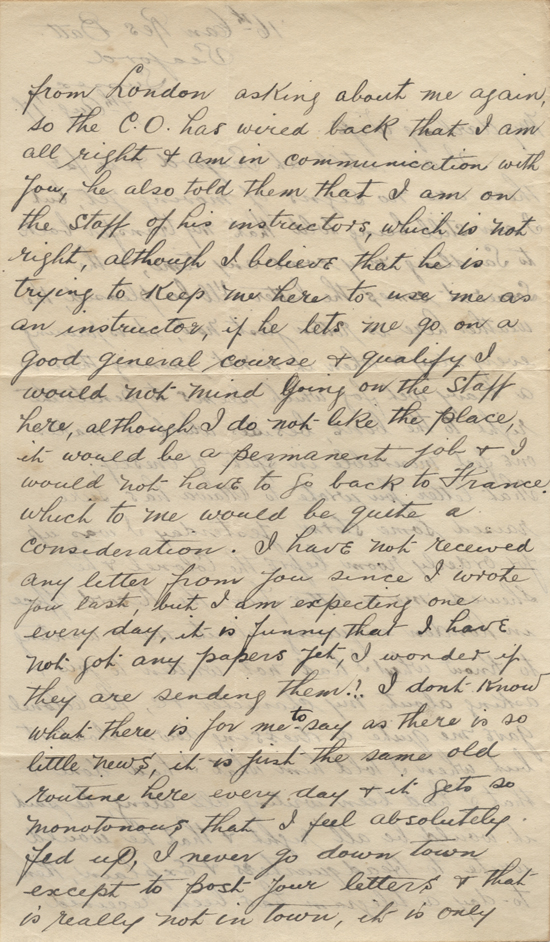 from London asking about me again,
so the C.O. has wired back that I am
all right & am in communication with
you, he also told them that I am on
the staff of his instructors, which is not
right, although I believe that he is
trying to keep me here to use me as
an instructor, if he lets me go on a
good general course & qualify I
would not mind going on the staff
here, although I do not like the place,
it would be a permanent job & I
would not have to go back to France.
which to me would be quite a
consideration. I have not received
any letter from you since I wrote
you last, but I am expecting one
every day, it is funny that I have
not got any papers yet, I wonder if
they are sending them?. I dont know
what there is for me to say as there is so
little news, it is just the same old
routine here every day & it gets so
monotonous that I feel absolutely.
fed up, I never go down town
except to post your letters & that
is really not in town, it is only